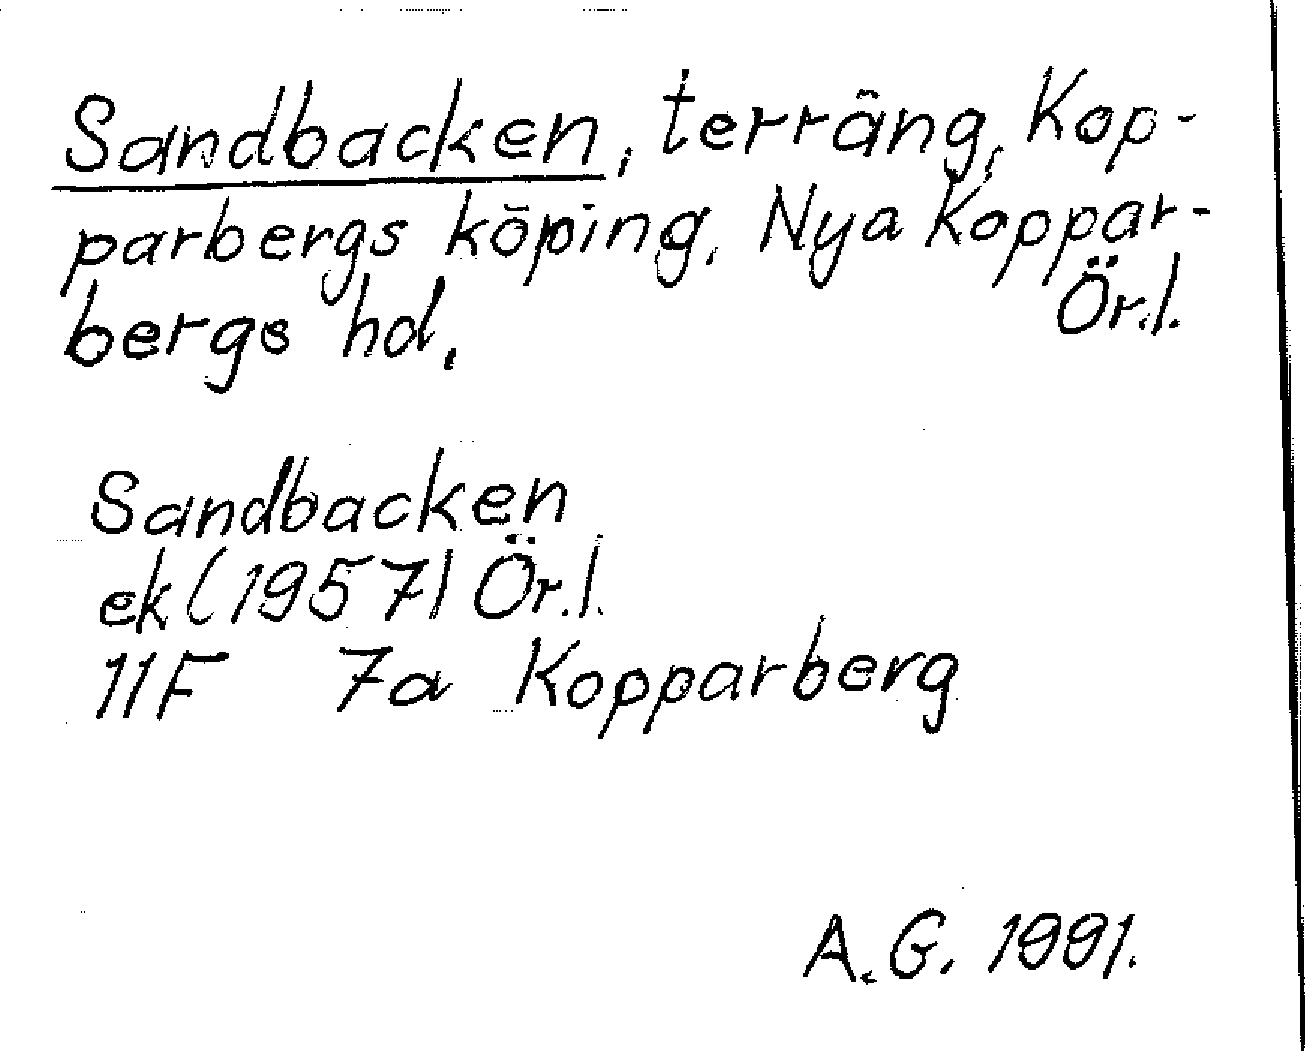 Sandbacken, terräng, Kop-
parbergs köping, Nya Koppar-
bergs hd. Ör.l.
Sandbacken
ek (1957) Ör.l.
11F 7a Kopparberg
A.G. 1991.